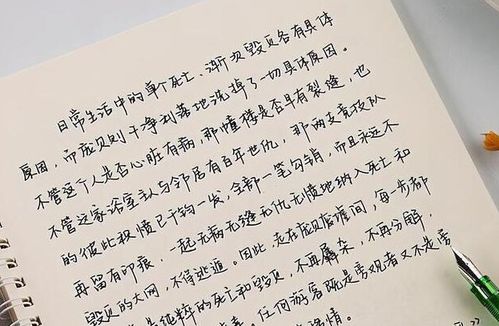 日常生活中的单个死亡、渐次毁灭各有具体
原因，而庞贝则干净利落地洗掉了一切具体原因。
不管这个人是否心脏有病，那幢楼是否早有裂缝，也
不管这家浴室主人与邻居有百年世仇，那两支竞技队
的彼此积愤已千钧一发，全部一笔勾销，而且永远不
再留有印痕，一起无病无缝无仇无愤地纳入死亡和
毁灭的大网，不得逃遁。因此，走在庞贝废墟间，每一步都
是纯粹的死亡和毁灭，不再羼杂，不再分解，
任何游客既是旁观者又不是旁